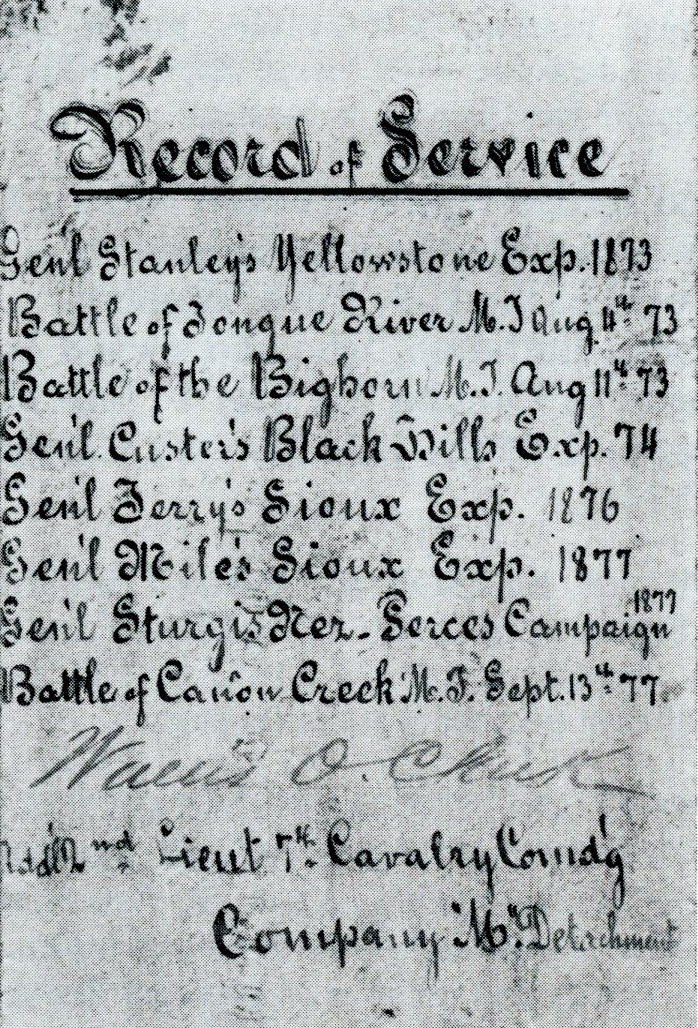 Record of Service
Gen'l Stanley's Yellowstone Exp. 1873
Battle of Tongue River M.T Aug. 4th 73
Battle of the Bighorn M.T. Aug 11th 73
Gen'l. Custer's Black Hills Exp. 74
Gen'l Terry's Sioux Exp. 1876
Gen'l Mile's Sioux Exp. 1877
Gen'l Sturgis Nez-Perces Campaign 1877
Battle of Cañon Creek M.T. Sept. 13th 77.
O.
2nd Lieut 7th Cavalry Comd'g
Company "M" Detachment